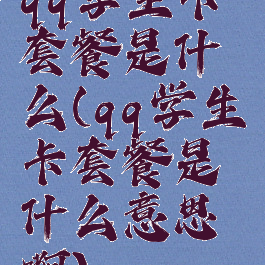 qq学生卡
套餐是什
么(qq学生
卡套餐是
什么意思
啊)